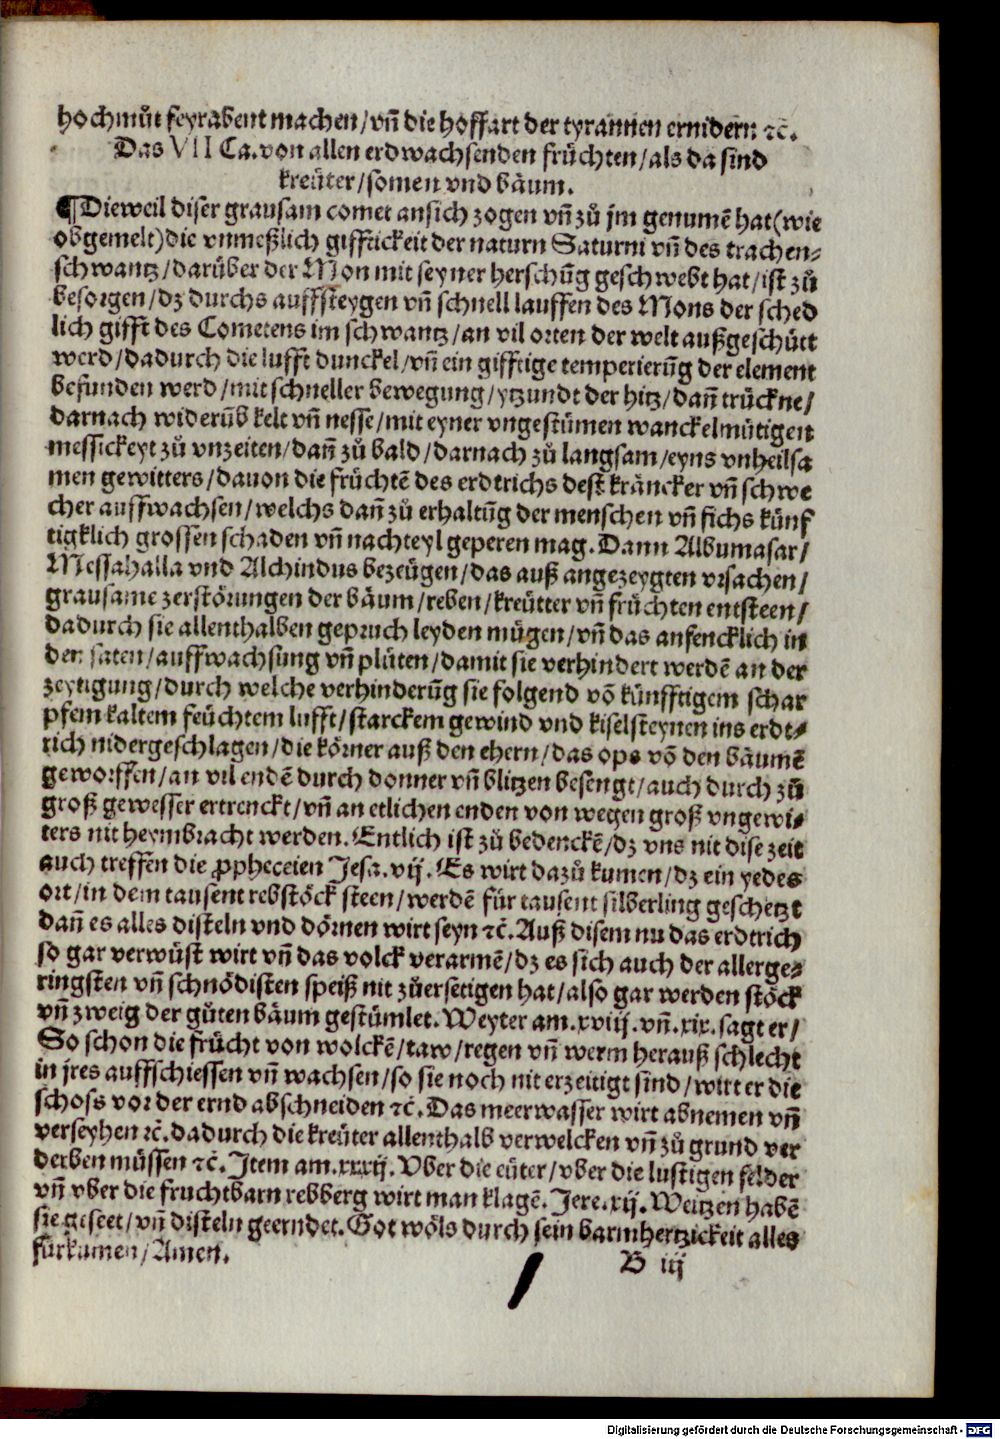 hochmůt feyrabent machen/vn̄ die hoffart der tyrannen ernidern ⁊c̄.
Das VII Ca.von allen erdwachsenden früchten/als da sind
kreüter/somen vnd bäum.
¶Dieweil diser grausam comet ansich zogen vn̄ zů jm genumē hat(wie
obgemelt)die vnmeßlich gifftickeit der naturn Saturni vn̄ des trachen⸗
schwantz/darüber der Mon mit seyner herschūg geschwebt hat/ist zů
besorgen/dz durchs auffsteygen vn̄ schnell lauffen des Mons der sched
lich gifft des Cometens im schwantz/an vil orten der welt außgeschütt
werd/dadurch die lufft dunckel/vn̄ ein gifftige temperierūg der element
befunden werd/mit schneller bewegung/ytzundt der hitz/dan̄ trückne/
darnach widerūb kelt vn̄ nesse/mit eyner vngestümen wanckelmütigen
messickeyt zů vnzeiten/dan̄ zů bald/darnach zů langsam/eyns vnheilsa
men gewitters/dauon die früchtē des erdtrichs dest kräncker vn̄ schwe
cher auffwachsen/welchs dan̄ zů erhaltūg der menschen vn̄ fichs künf
tigklich grossen schaden vn̄ nachteyl geperen mag. Dann Albumasar/
Messahalla vnd Alchindus bezeügen/das auß angezeygten vrsachen/
grausame zerstörungen der bäum/reben/kreütter vn̄ früchten entsteen/
dadurch sie allenthalben gepruch leyden mügen/vn̄ das anfencklich in
den saten/auffwachsung vn̄ plüten/damit sie verhindert werdē an der
zeytigung/durch welche verhinderūg sie folgend vō künfftigem schar
pfem kaltem feüchtem lufft/starckem gewind vnd kiselsteynen ins erdt⸗
rich nidergeschlagen/die körner auß den ehern/das ops vō den bäumē
geworffen/an vil endē durch donner vn̄ blitzen besengt/auch durch zů
groß gewesser ertrenckt/vn̄ an etlichen enden von wegen groß vngewi⸗
ters nit heymbracht werden. Entlich ist zů bedenckē/dz vns nit dise zeit
auch treffen die ꝓpheceien Jesa.vij. Es wirt dazů kumen/dz ein yedes
ort/in dem tausent rebstöck steen/werdē für tausent silberling geschetzt
dan̄ es alles disteln vnd dörnen wirt seyn ⁊c̄. Auß disem nu das erdtrich
so gar verwüst wirt vn̄ das volck verarmē/dz es sich auch der allerge⸗
ringsten vn̄ schnödisten speiß nit zůersetigen hat/also gar werden stöck
vn̄ zweig der gůten bäum gestümlet. Weyter am.xviij.vn̄.xix.sagt er/
So schon die frücht von wolckē/taw/regen vn̄ werm herauß schlecht
in jres auffschiessen vn̄ wachsen/so sie noch nit erzeitigt sind/wirt er die
schoss vor der ernd abschneiden ⁊c̄. Das meerwasser wirt abnemen vn̄
verseyhen ⁊c̄.dadurch die kreüter allenthalb verwelcken vn̄ zů grund ver
derben müssen ⁊c̄. Jtem am.xxxij. Vber die eüter/vber die lustigen felder
vn̄ vber die fruchtbarn rebberg wirt man klagē. Jere.xij. Weitzen habē
sie geseet/vn̄ disteln geerndet. Got wöls durch sein barmhertzickeit alles
fürkumen/Amen.
B iij
Digitalisierung gefördert durch die Deutsche Forschungsgemeinschaft - DFG